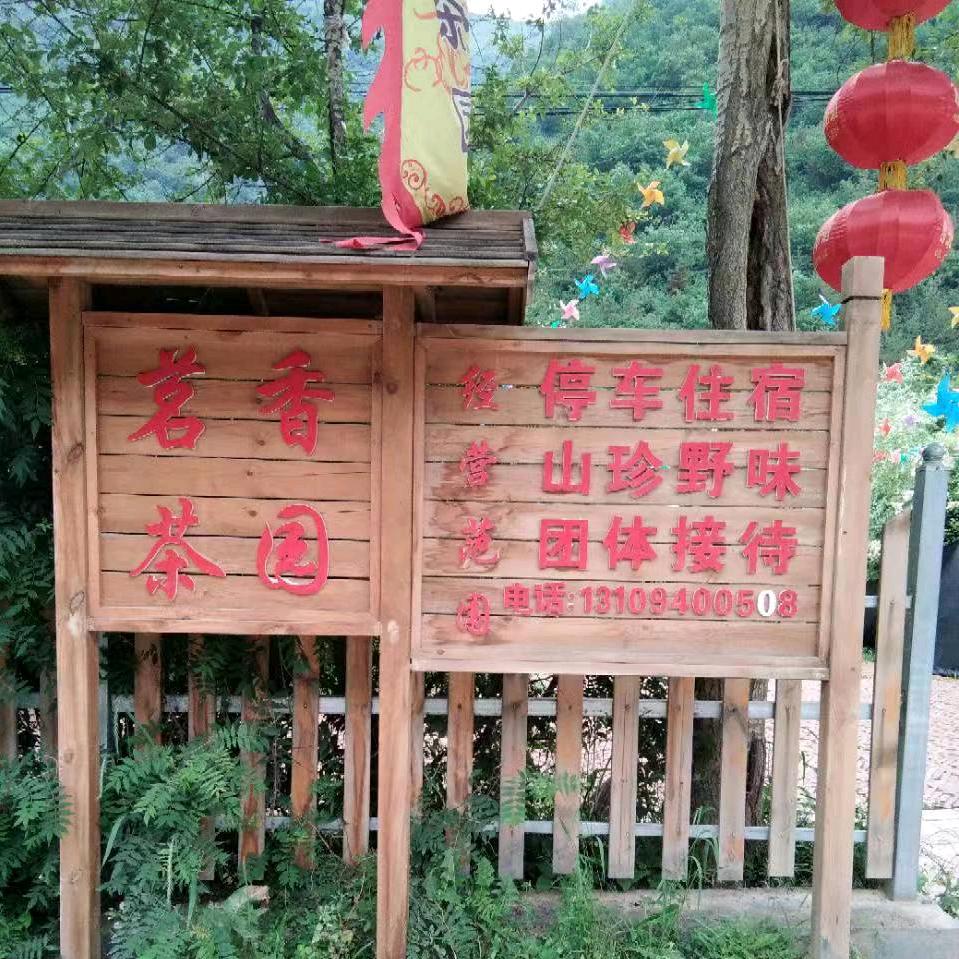 茗香
茶园
经营范围
停车住宿
山珍野味
团体接待
电话:13109400508